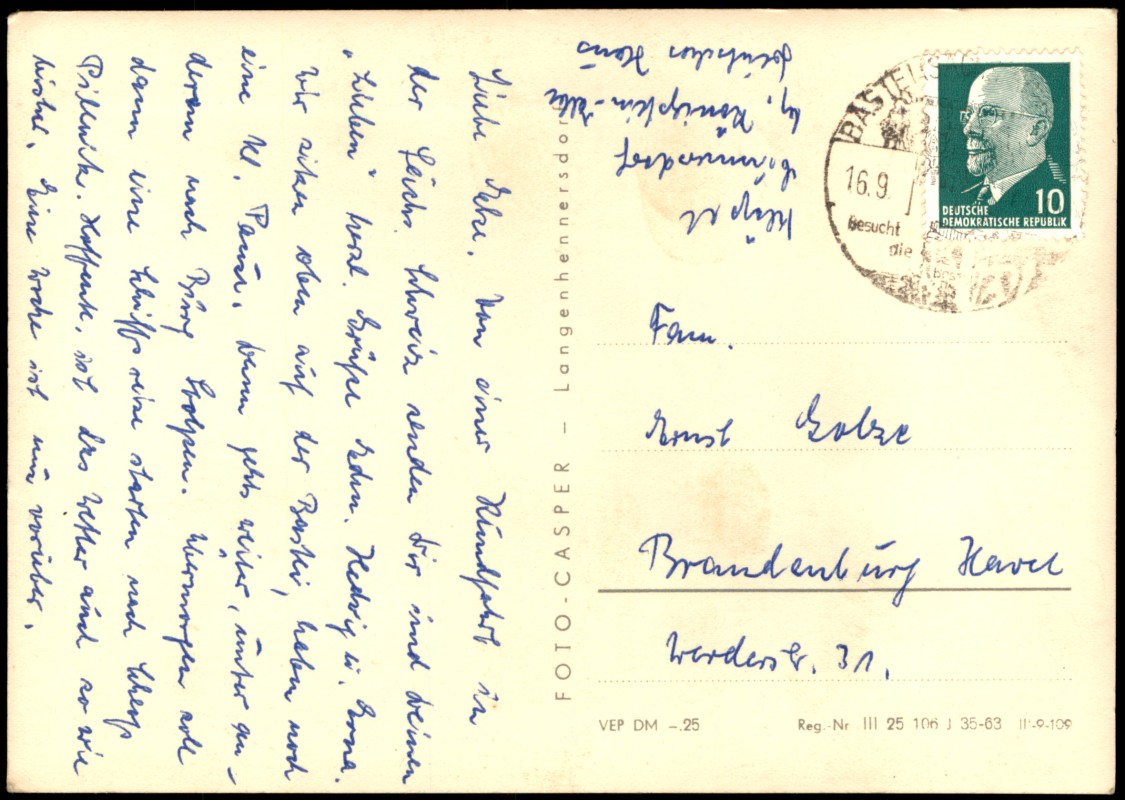 Liebe Elze. Von einer Rundfahrt in
der Sächs. Schweiz senden wir Dir und Deinen
"Lieben" herzl. Grüße Edm. Hedwig u. Erna.
Wir sitzen oben auf der Bastei, haben noch
eine kl. Pause. Dann gehts weiter, unter an-
derem nach Burg Stolpen. Übermorgen soll
dann eine Schiffsreise starten nach Schloß
Pillnitz. Hoffentl. ist das Wetter auch so wie
bisher. Eine Woche ist nun vorüber.
FOTO-CASPER – Langenhennersdorf
z. Zt.
Cunnersdorf
bg. Königstein-Elbe
Deutsches Haus
BASTEI
16.9.
Besucht
die
DEUTSCHE
DEMOKRATISCHE REPUBLIK
10
Fam.
Ernst Golze
Brandenburg Havel
Werderstr. 31.
VEP DM –.25
Reg.-Nr III 25 106 J 35-63 III-9-109